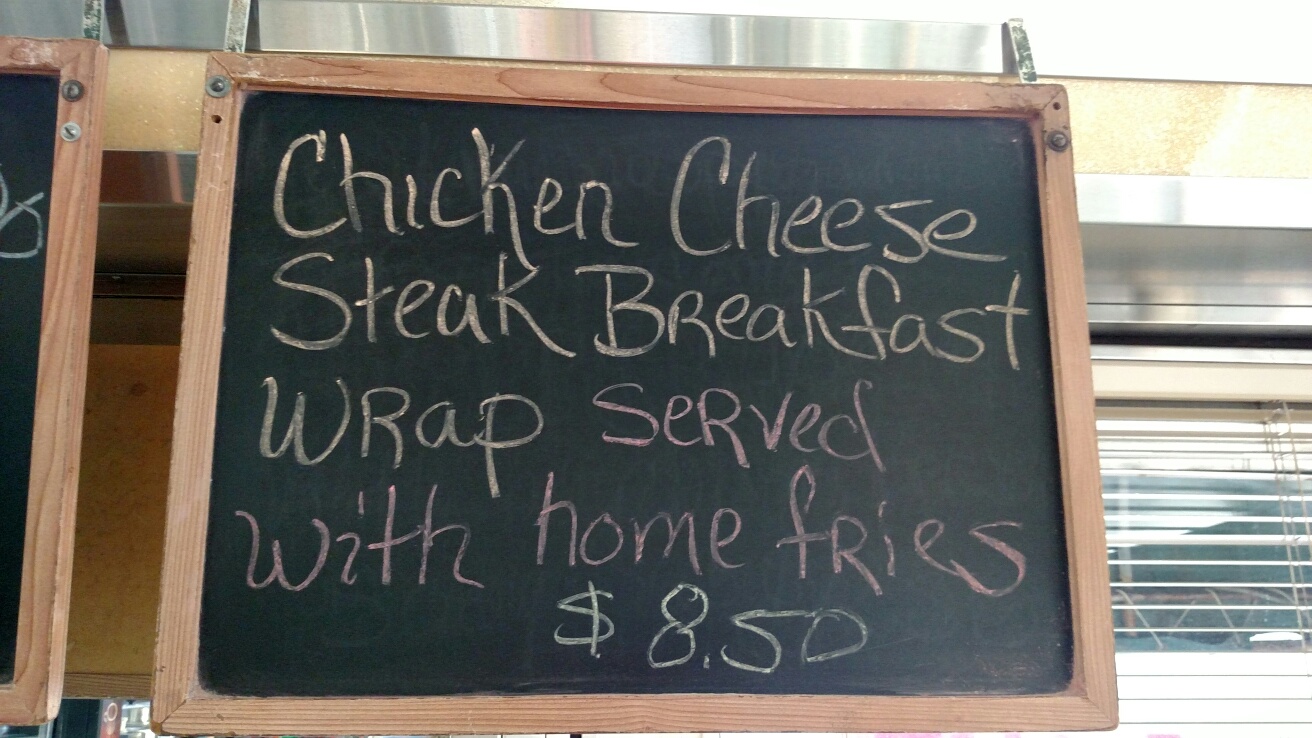 Chicken Cheese
Steak Breakfast
Wrap Served
with home fries
$8.50